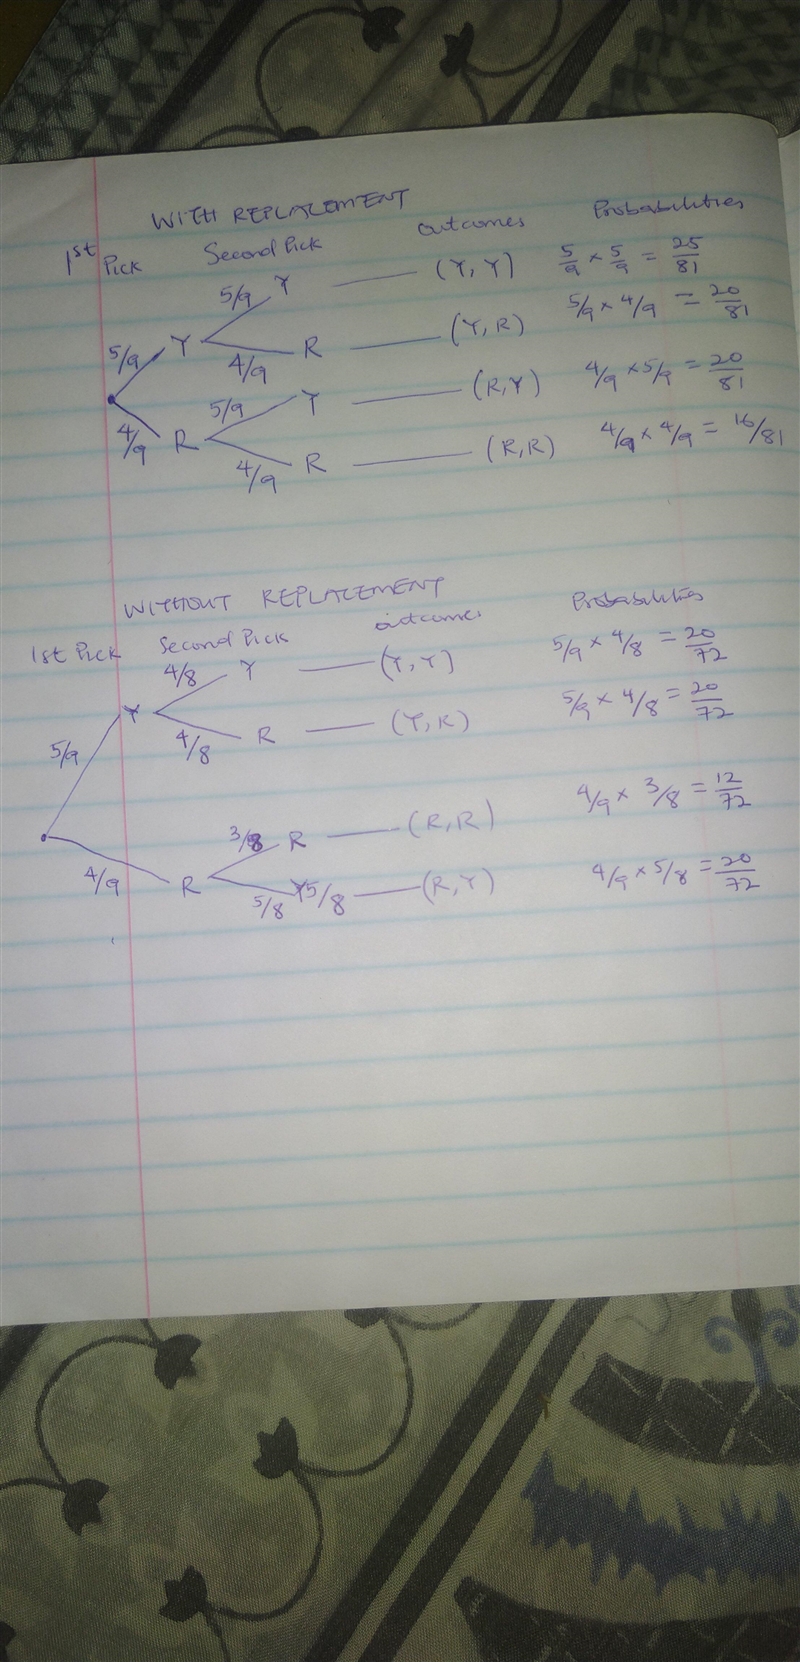 WITH REPLACEMENT
1st Pick Second Pick outcomes Probabilities
5/9 Y (Y, Y) 5/9 × 5/9 = 25/81
5/9 Y 4/9 R (Y, R) 5/9 × 4/9 = 20/81
5/9 Y (R, Y) 4/9 × 5/9 = 20/81
4/9 R 4/9 R (R, R) 4/9 × 4/9 = 16/81
WITHOUT REPLACEMENT
1st Pick Second Pick outcomes Probabilities
4/8 Y (Y, Y) 5/9 × 4/8 = 20/72
5/9 Y 4/8 R (Y, R) 5/9 × 4/8 = 20/72
3/8 R (R, R) 4/9 × 3/8 = 12/72
4/9 R 5/8 Y 5/8 (R, Y) 4/9 × 5/8 = 20/72